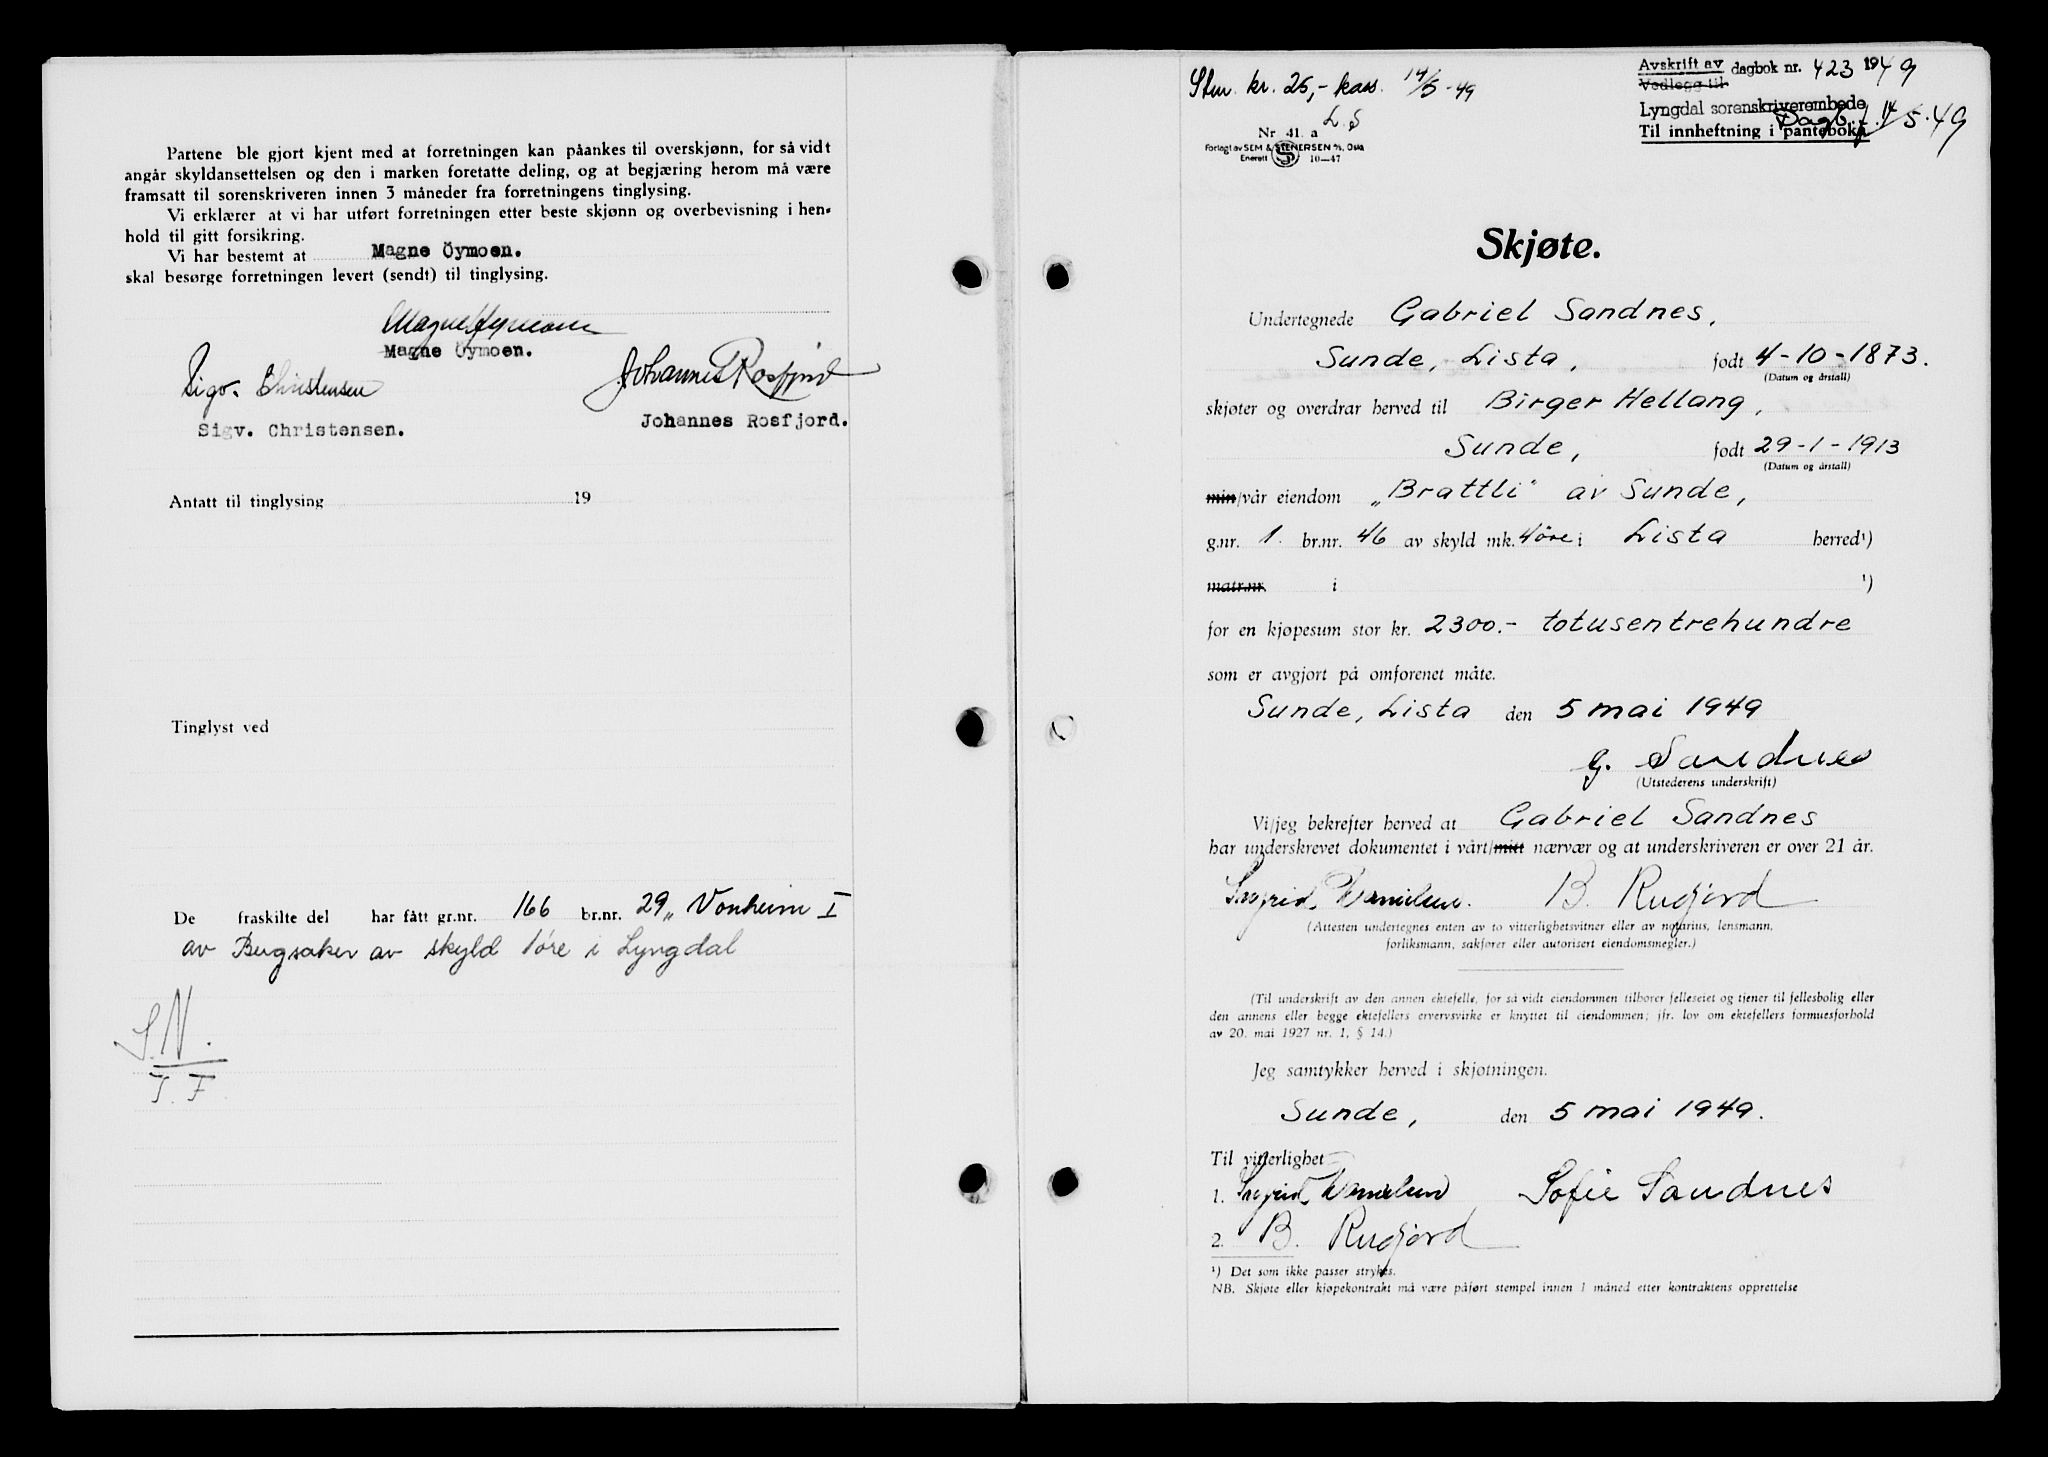 Partene ble gjort kjent med at forretningen kan påankes til overskjønn, for så vidt
angår skyldansettelsen og den i marken foretatte deling, og at begjæring herom må være
framsatt til sorenskriveren innen 3 måneder fra forretningens tinglysing.
Vi erklærer at vi har utført forretningen etter beste skjønn og overbevisning i hen-
hold til gitt forsikring.
Vi har bestemt at Magne Öymoen.
skal besørge forretningen levert (sendt) til tinglysing.
Magne Øymoen
Magne Öymoen.
Sigv. Christensen
Johannes Rosfjord
Sigv. Christensen.
Johannes Rosfjord.
Antatt til tinglysing 19
Tinglyst ved
De fraskilte del har fått gr.nr. 166 br.nr. 29 „Vonheim I
av Bergsaker av skyld 1 øre i Lyngdal
S.N.
T. F.
Stm. kr. 25,- kass. 14/5-49
L.S
Avskrift av
Vedlegg til
dagbok nr. 423 1949
Lyngdal sorenskriverembede
Dagb. 14/5.49
Til innheftning i pantebok
Nr. 41. a
Forlagt av SEM & STENERSEN A/S, Oslo
Enerett S 10—47
Skjøte.
Undertegnede Gabriel Sandnes,
Sunde, Lista, født 4-10-1873.
(Datum og årstall)
skjøter og overdrar herved til Birger Hellang,
Sunde, født 29-1-1913
(Datum og årstall)
min/vår eiendom „Brattli" av Sunde,
g.nr. 1. br.nr. 46 av skyld mk. 4 øre i Lista herred¹)
matr.nr. i ¹)
for en kjøpesum stor kr. 2300.- totusentrehundre
som er avgjort på omforenet måte.
Sunde, Lista den 5 mai 1949
G. Sandnes
(Utstederens underskrift)
Vi/jeg bekrefter herved at Gabriel Sandnes
har underskrevet dokumentet i vårt/mitt nærvær og at underskriveren er over 21 år.
Ingrid Danielsen. B. Rudjord
(Attesten undertegnes enten av to vitterlighetsvitner eller av notarius, lensmann,
forliksmann, sakfører eller autorisert eiendomsmegler.)
(Til underskrift av den annen ektefelle, for så vidt eiendommen tilhører felleseiet og tjener til fellesbolig eller
den annens eller begge ektefellers ervervsvirke er knyttet til eiendommen; jfr. lov om ektefellers formuesforhold
av 20. mai 1927 nr. 1, § 14.)
Jeg samtykker herved i skjøtningen.
Sunde, den 5 mai 1949.
Til vitterlighet
1. Ingrid Danielsen Sofie Sandnes
2. B. Rudjord
¹) Det som ikke passer strykes.
NB. Skjøte eller kjøpekontrakt må være påført stempel innen 1 måned etter kontraktens opprettelse